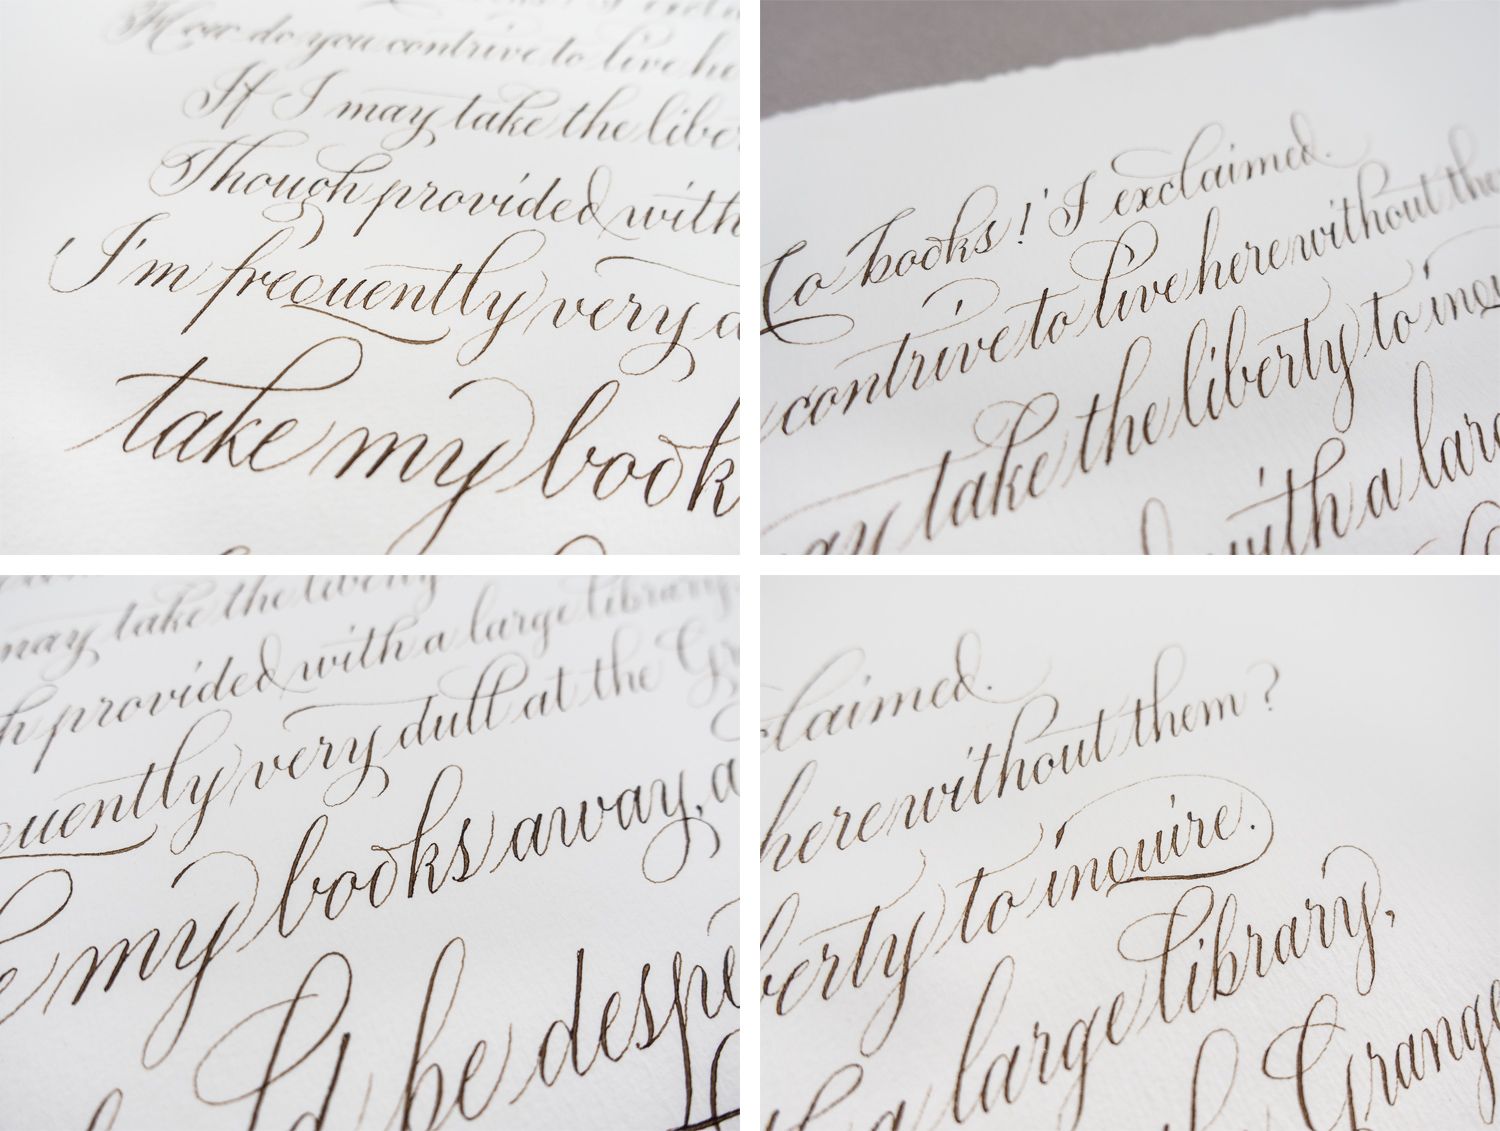 How do you contrive to live he
If I may take the libe
Though provided with
'I'm frequently very d
take my book
No books!' I exclaimed.
contrive to live here without the
may take the liberty to inqu
with a larg
may take the liberty
h provided with a large library,
quently very dull at the Gr
my books away, a
I'd be despe
claimed.
here without them?
berty to inquire.
a large library,
Grange